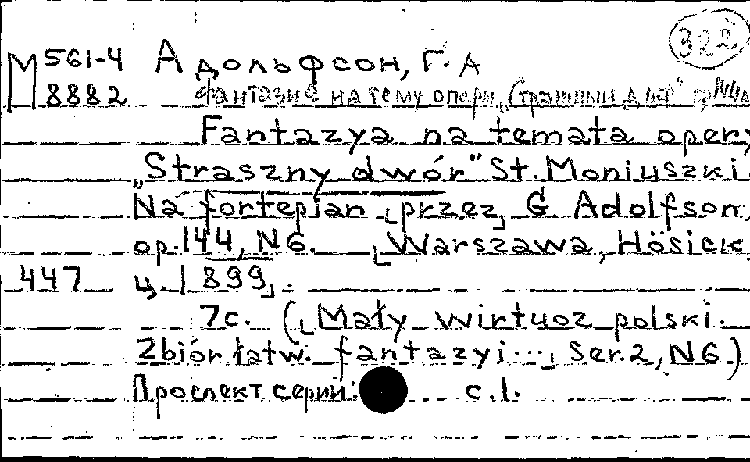 322
М 561-4 Адольфсон, Г. А
8882 Фантазия на тему оперы „Страшный двор"
Fantazya na temata opery
„Straszny dwór" St. Moniuszki.
Na fortepian [przez] G. Adolfson.
op. 144, N6. [Warszawa, Hösick,
447 ц. 1899].
7с. ([Mały wirtuoz polski.
Zbiór łatw. fantazyi...] Ser. 2, N6)
Проспект серии: с.1.